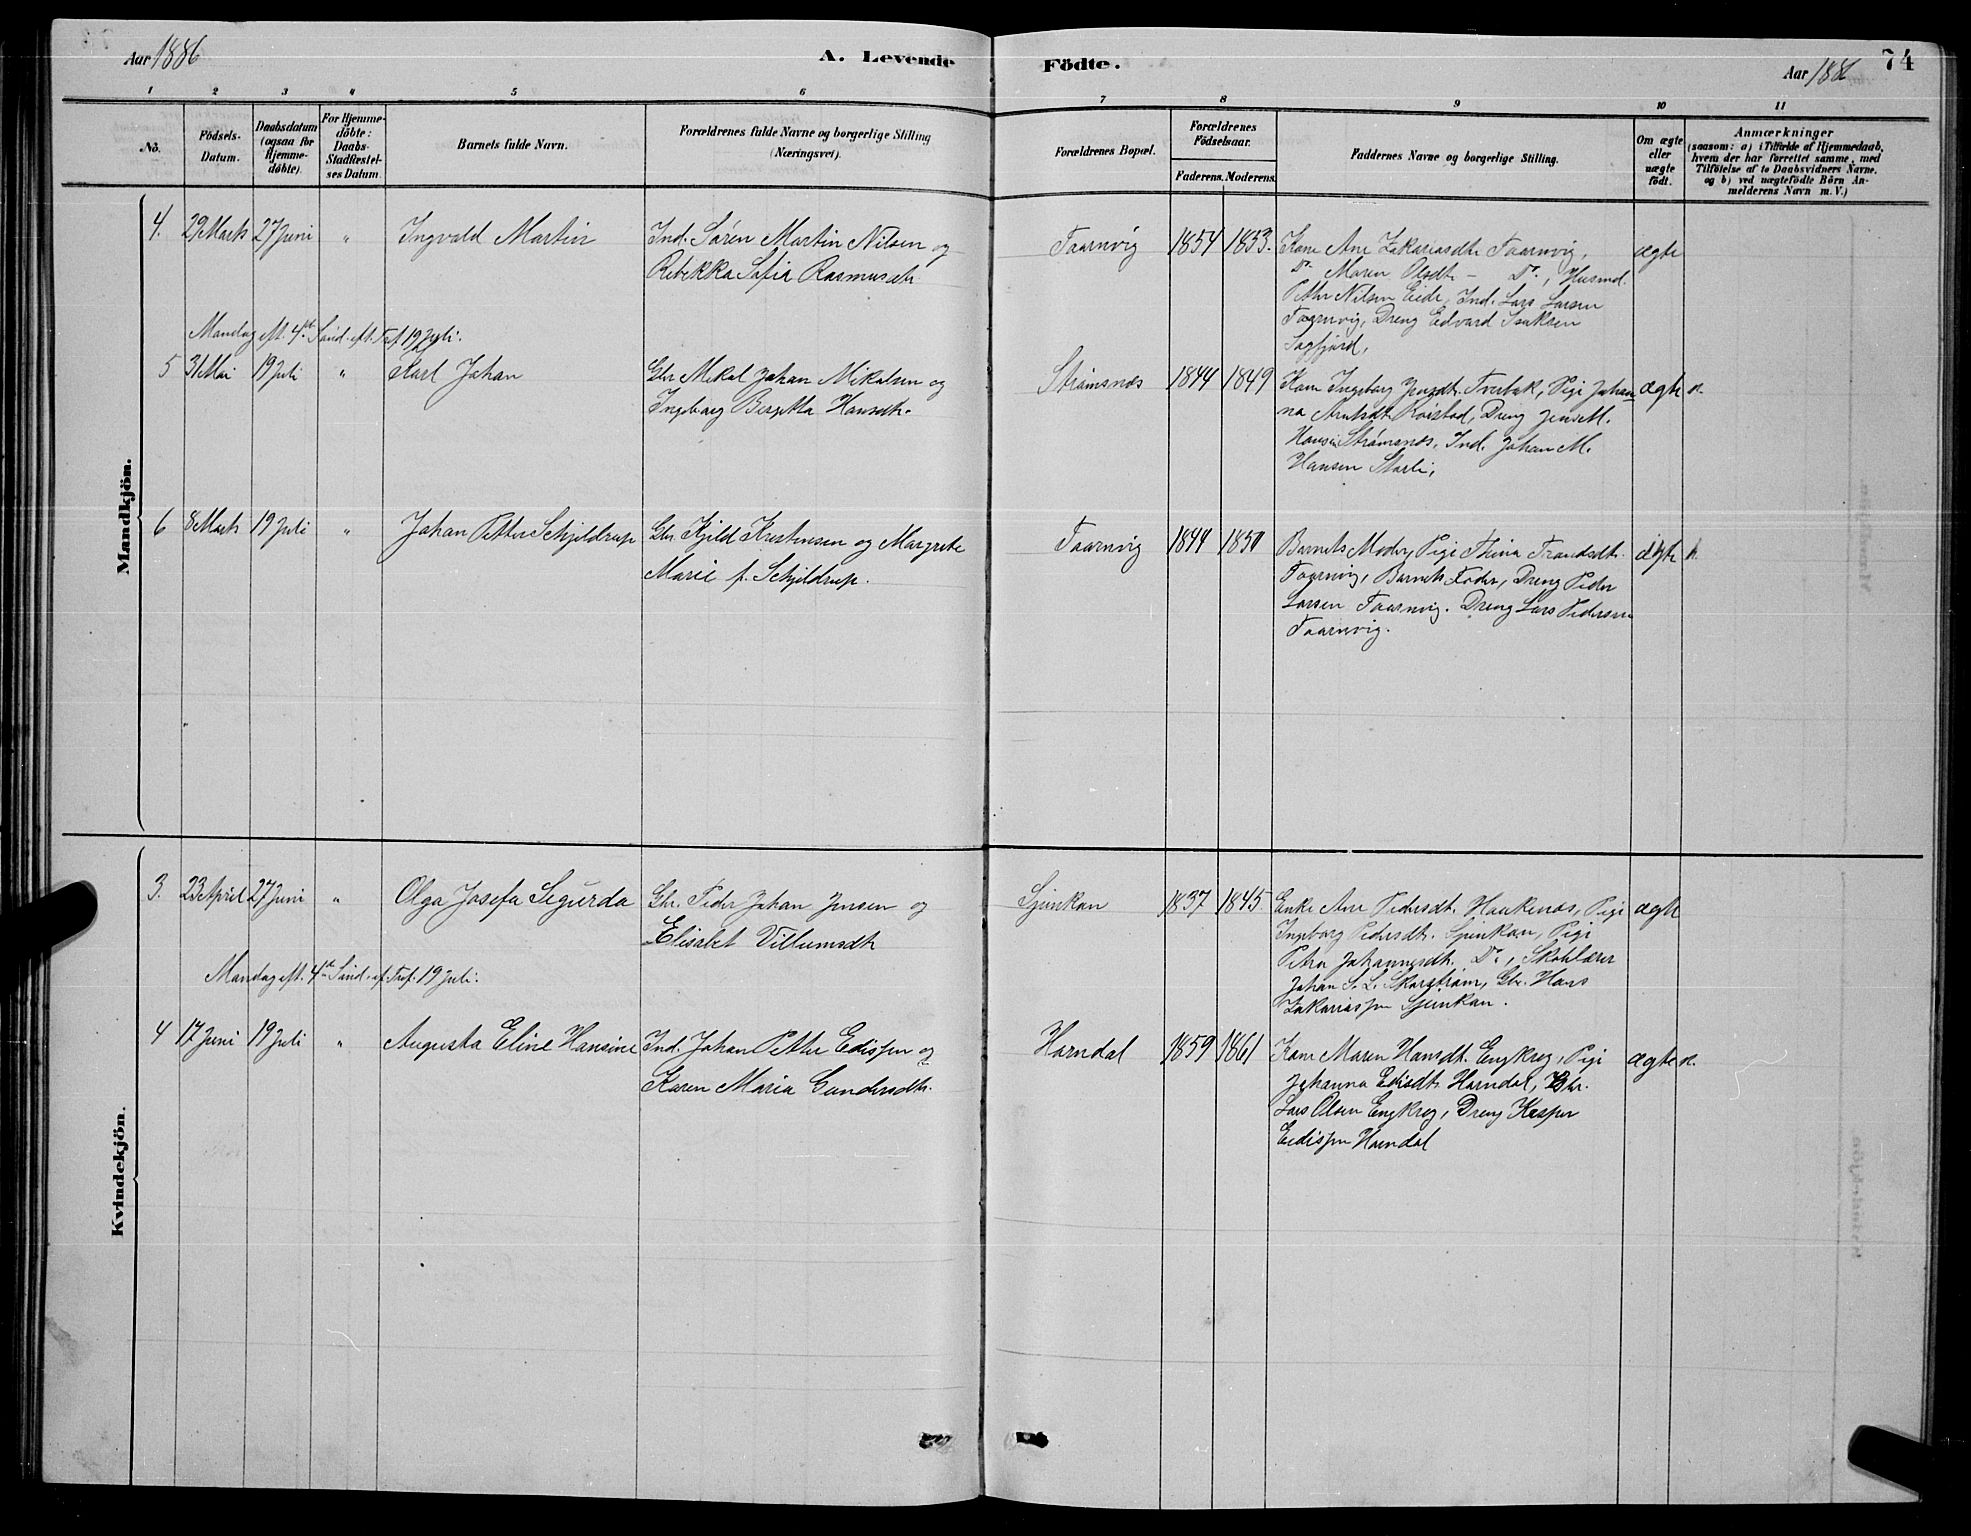 Aar 1886
A. Levende
Födte.
Aar 1886
74
1 2 3 4 5 6 7 8 9 10 11
No.
Födsels-Datum.
Daabsdatum (ogsaa for Hjemme-döbte).
For Hjemme-döbte: Daabs-Stadfæstel-ses Datum.
Barnets fulde Navn.
Forældrenes fulde Navne og borgerlige Stilling
(Næringsvei).
Forældrenes Bopæl.
Forældrenes Födselsaar.
Faderens. Moderens.
Faddernes Navne og borgerlige Stilling.
Om ægte eller uægte födt.
Anmærkninger
(saasom: a) i Tilfælde af Hjemmedaab,
hvem der har forrettet samme, med
Tilföielse af to Daabsvidners Navne,
og b) ved uægtefödte Börn An-
melderens Navn m. V.)
Mandkjön.
4. 29 Marts 27 Juni " Ingvald Martin
Ind. Sören Martin Nilsen og
Rebekka Sofia Rasmusdtr
Taarnvig 1854 1853.
Kone Ane Zakariasdtr Taarnvig,
Do Maren Olsdtr - Do, Husmd.
Petter Nilsen Eide, Ind. Lars Larsen
Taarnvig, Dreng Edvard Isaksen
Sagfjord,
ægte
Mandag eft. 4de Sönd. eft. Tref. 19 Juli:
5 31 Mai 19 Juli " Karl Johan
Gbr. Mikal Johan Mikalsen og
Ingeborg Bergitta Hansdtr.
Strömsnæs 1844 1849
Kone Ingeborg Jensdtr. Tverbak, Pige Johan
na Arntsdtr. , Dreng Jens M.
Hansen Strömsnæs, Ind. Johan M.
Hansen Storli,
ægte n.
6 8 Marts 19 Juli " Johan Petter Schjeldrup
Gbr. Kjeld Kristensen og Margrete
Marie f. Schjeldrup.
Taarnvig 1844 1850
Barnets Moder, Pige Thina
Taarnvig, Barnets Fader, Dreng Peder
Larsen Taarnvig. Dreng Lars Pedersen
Taarnvig.
ægte n.
Kvindekjön.
3. 23 April 27 Juni " Olga Josefa Sigurda
Gbr. Peder Johan Jensen og
Elisabet Villumsdtr
Sjunkan 1837 1845
Enke Ane Pedersdtr. Haukenæs, Pige
Ingeborg Pedersdtr. Sjunkan, Pige
Petra Johannesdtr. Do, Skolelærer
Johan S. L. Skarström, Gbr. Hans
Zakariassen Sjunkan.
ægte
Mandag eft. 4de Sönd. ef. Tref. 19 Juli:
4 17 Juni 19 Juli " Augusta Eline Hansine
Ind. Johan Petter Edissen og
Karen Maria Gundersdtr.
Horndal 1859 1861
Kone Maren Hansdtr. Engkrog, Pige
Johanna Edisdtr. Horndal, Gbr.
Lars Olsen Engkrog, Dreng Kasper
Edissen Horndal
ægte n.